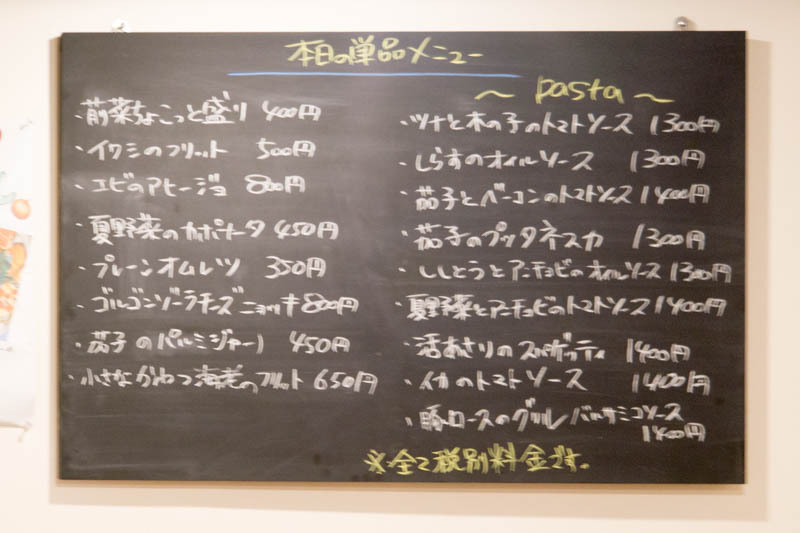 本日の単品メニュー
・前菜ちょこっと盛り 400円
・イワシのフリット 500円
・エビのアヒージョ 800円
・夏野菜のカポナータ 450円
・プレーンオムレツ 350円
・ゴルゴンゾーラチーズニョッキ 800円
・茄子のパルミジャーノ 450円
・小さなかわつ海老のフリット 650円
～ pasta ～
・ツナと木の子のトマトソース 1300円
・しらすのオイルソース 1300円
・茄子とベーコンのトマトソース 1400円
・茄子のプッタネスカ 1300円
・ししとうとアンチョビのオイルソース 1300円
・夏野菜とアンチョビのトマトソース 1400円
・活あさりのスパゲッティ 1400円
・イカのトマトソース 1400円
・豚ロースのグリル バルサミコソース
1400円
※全て税別料金です。